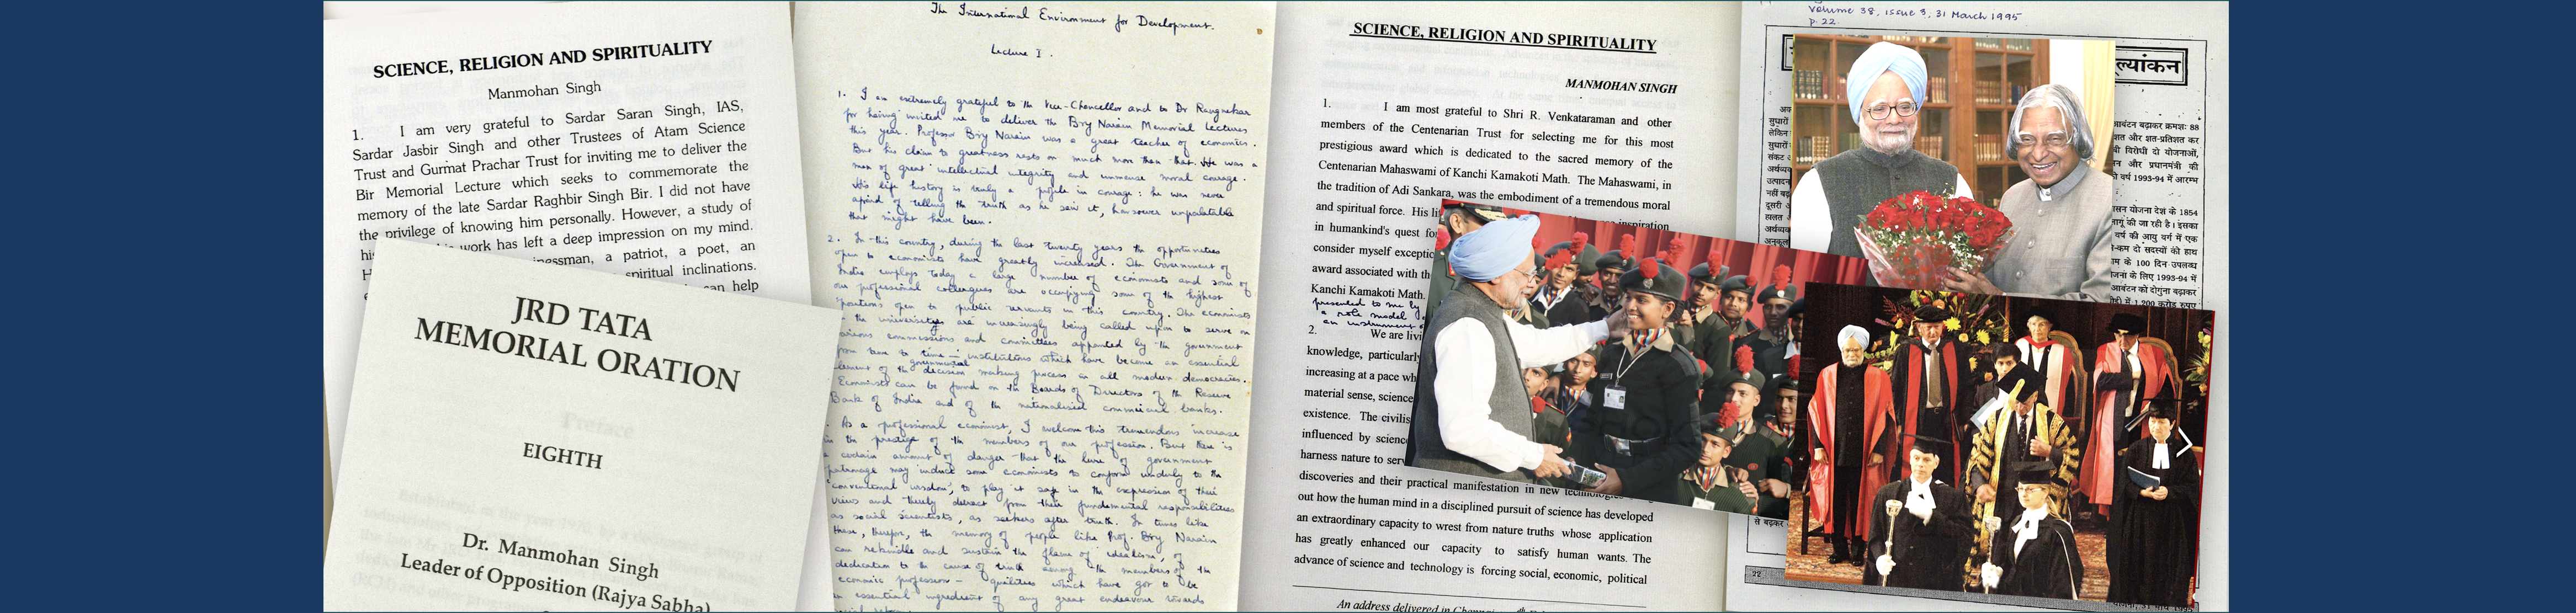 SCIENCE, RELIGION AND SPIRITUALITY
Manmohan Singh
1. I am very grateful to Sardar Saran Singh, IAS,
Sardar Jasbir Singh and other Trustees of Atam Science
Trust and Gurmat Prachar Trust for inviting me to deliver the
Bir Memorial Lecture which seeks to commemorate the
memory of the late Sardar Raghbir Singh Bir. I did not have
the privilege of knowing him personally. However, a study of
work has left a deep impression on my mind.
a patriot, a poet, an
spiritual inclinations.
can help
JRD TATA
MEMORIAL ORATION
Preface
EIGHTH
Dr. Manmohan Singh
Leader of Opposition (Rajya Sabha)
The International Environment for Development.
Lecture I.
1. I am extremely grateful to the Vice-Chancellor and to Dr Rangnekar
for having invited me to deliver the Brij Narain Memorial Lectures
this year. Professor Brij Narain was a great teacher of economics.
But his claim to greatness rests on much more than that. He was a
man of great intellectual integrity and immense moral courage.
His life history is truly a profile in courage: he was never
afraid of telling the truth as he saw it, howsoever unpalatable
that might have been.
2. In this country, during the last twenty years the opportunities
open to economists have greatly increased. The Government of
India employs today a large number of economists and some of
our professional colleagues are occupying some of the highest
positions open to public servants in this country. The economists
the universities are increasingly being called upon to serve on
various commissions and committees appointed by the government
from time to time - institutions which have become an essential
element of the governmental decision making process in all modern democracies.
Economists can be found on the Boards of Directors of the Reserve
Bank of India and of the nationalised commercial banks.
As a professional economist, I welcome this tremendous increase
in the prestige of the members of our profession. But there is
a certain amount of danger that the lure of government
patronage may induce some economists to conform unduly to the
'conventional wisdom', to play it safe in the expression of their
views and thereby detract from their fundamental responsibilities
as social scientists, as seekers after truth. In times like
these, therefore, the memory of people like Prof. Brij Narain
can rekindle and sustain the flame of idealism, of
dedication to the cause of truth among the members of the
economic profession - qualities which have got to be
an essential ingredient of any great endeavour towards
SCIENCE, RELIGION AND SPIRITUALITY
MANMOHAN SINGH
1. I am most grateful to Shri R. Venkataraman and other
members of the Centenarian Trust for selecting me for this most
prestigious award which is dedicated to the sacred memory of the
Centenarian Mahaswami of Kanchi Kamakoti Math. The Mahaswami, in
the tradition of Adi Sankara, was the embodiment of a tremendous moral
and spiritual force. His
inspiration
in humankind's quest
consider myself
award associated with
Kanchi Kamakoti Math.
presented to me by
a role model
an instrument
2. We are
knowledge, particularly
increasing at a pace
material sense, science
existence. The
influenced by science
harness nature to
discoveries and their practical manifestation in new
out how the human mind in a disciplined pursuit of science has developed
an extraordinary capacity to wrest from nature truths whose application
has greatly enhanced our capacity to satisfy human wants. The
advance of science and technology is forcing social, economic, political
An address delivered in
Volume 38, issue 3, 31 March 1995
p. 22.
ल्यांकन
आबंटन बढ़ाकर क्रमशः 88
और शत-प्रतिशत कर
विरोधी दो योजनाओं,
और प्रधानमंत्री की
वर्ष 1993-94 में आरम्भ
योजना देश के 1854
लागू की जा रही है। इसका
वर्ष की आयु वर्ग में एक
दो सदस्यों को हाथ
के 100 दिन उपलब्ध
के लिए 1993-94 में
आबंटन को दोगुना बढ़ाकर
में 1,200 करोड़ रुपए
सुधारों
लेकिन
सुधारों
संकट
उत्पादन
दूसरी
हालत
से बढ़कर
22